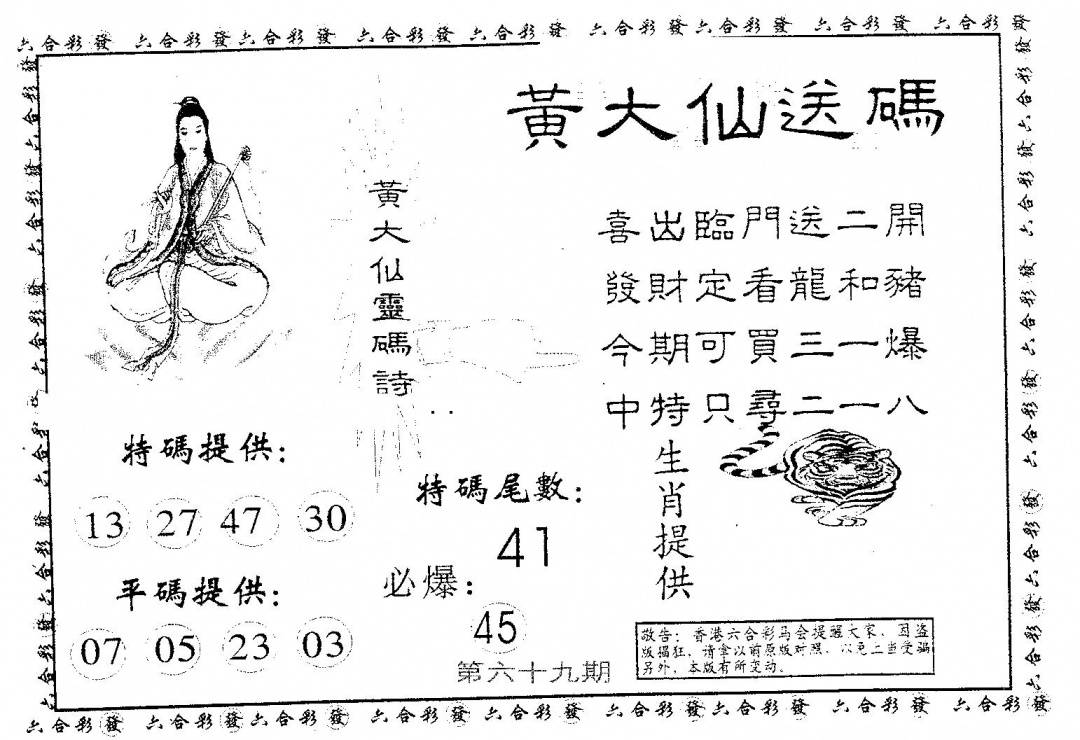 六合彩發 六合彩發六合彩發 六合彩發六合彩發 六合彩發六合彩發 六合彩發 六合彩發
黃大仙送碼
黃大仙靈碼詩
喜出臨門送二開
發財定看龍和豬
今期可買三一爆
中特只尋二一八
生肖提供
特碼提供:
13 27 47 30
特碼尾數:
41
平碼提供:
07 05 23 03
必爆:
45
第六十九期
敬告:香港六合彩马会提醒大家,因盗
版猖狂,请拿以前原版对照,以免上当受骗
另外,本版有所变动.
六合彩發 六合彩發六合彩發 六合彩發六合彩發 六合彩發六合彩發 六合彩發 六合彩發